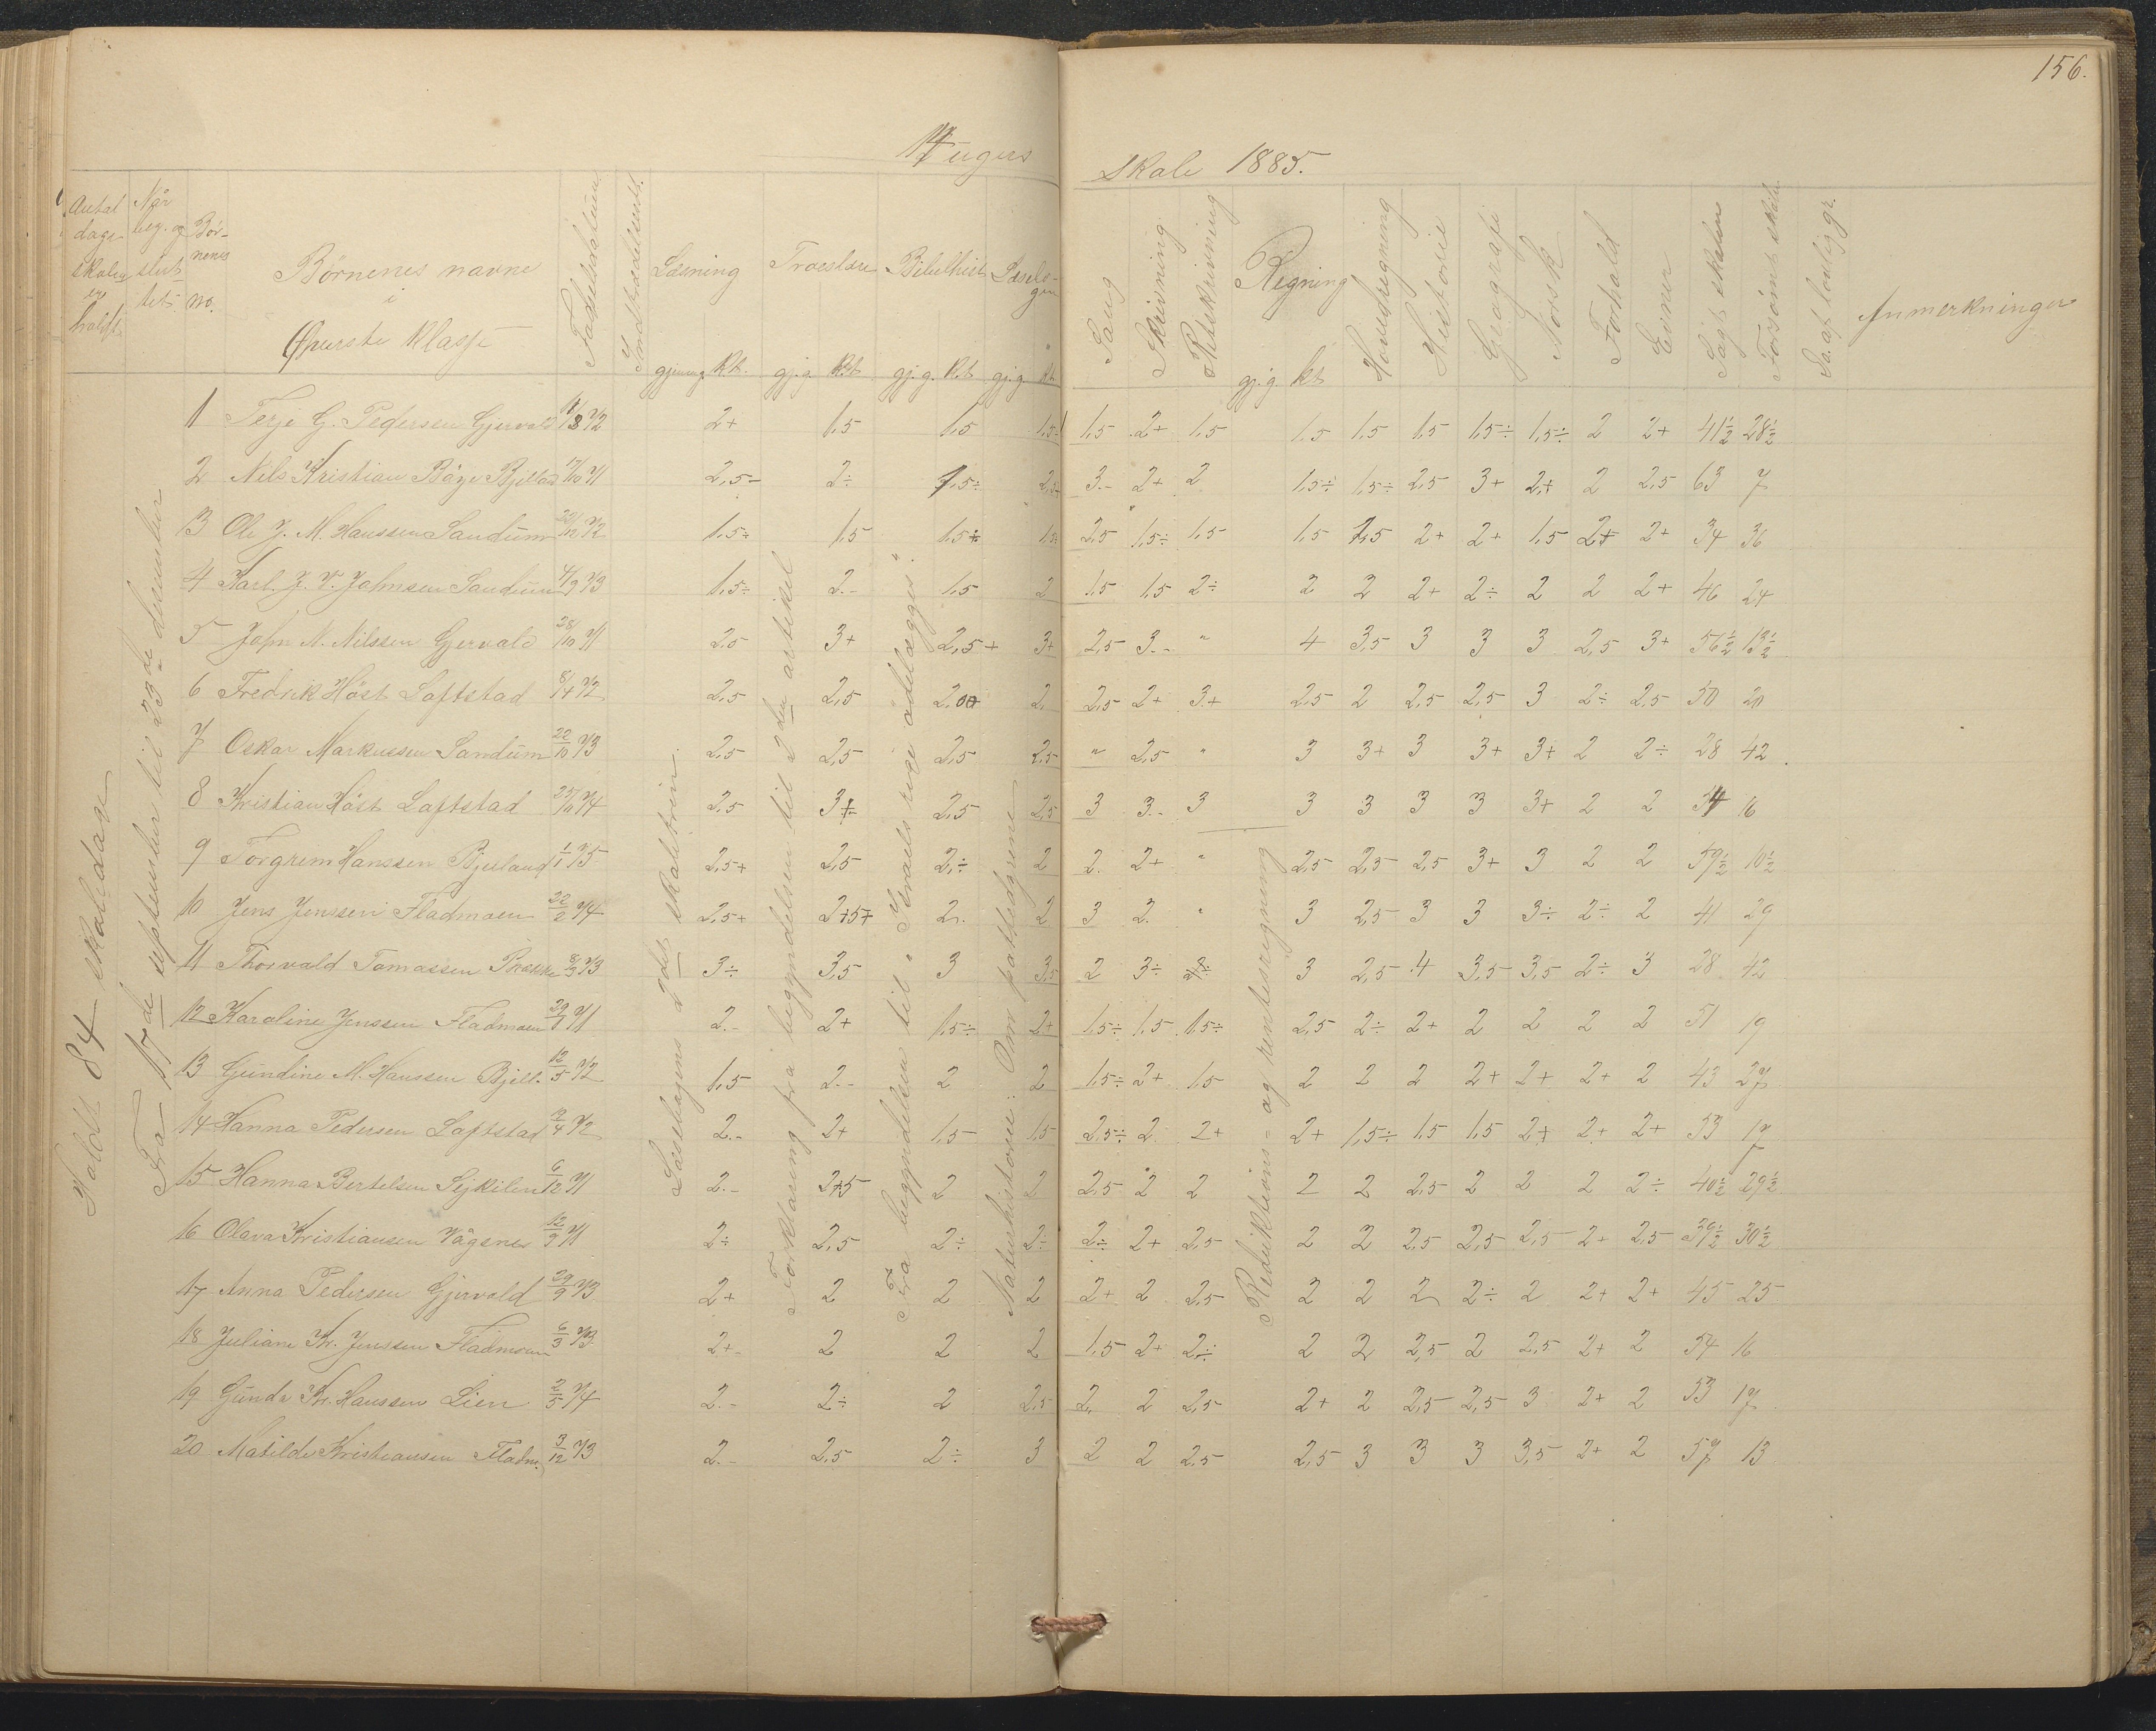 156.
14 ugers skole 1885.
Antal dage skolen er holdt
Når beg. og sluttet
Børnenes no.
Børnenes navne i Øverste Klasse
Fødselsdatum
Indtrædelsent.
Læsning gjennemg. kt.
Troeslære gj.g. kt
Bibelhist. gj.g. kt
gj.g. kt
Sang
Skrivning
Retskrivning
Regning gj.g kt
Hovedregning
Historie
Geografi
Norsk
Forhold
Evner
Søgt skolen
Forsømt skolen
Anmerkninger
Holdt 84 skoledage
Fra 17de september til 23de december
Læsebogens 2det skoletrin.
Forklaring fra begyndelsen til 2den artikel
Fra begyndelsen til „Israels rige ødelægges“.
Naturhistorie: Om pattedyrene
Reduktions- og rentesregning
1 Terje G. Pedersen Gjervold 11/3 72 2+ 1,5 1,5 1,5÷ 1,5 2+ 1,5 1,5 1,5 1,5 1,5÷ 1,5÷ 2 2+ 41½ 28½
2 Nils Kristian Bøge 17/10 71 2,5- 2÷ 1,5÷ 2,5- 3.- 2+ 2 1,5÷ 1,5÷ 2,5 3+ 2+ 2 2,5 63 7
3 Ole J. M. Hanssen Sandum 22/12 72 1,5÷ 1,5 1,5÷ 1,5÷ 2,5 1,5÷ 1,5 1,5 1,5 2+ 2+ 1,5 2+ 2+ 34 36
4 Karl. J. V. Johnsen Sandum 4/9 73 1,5÷ 2.- 1,5 2 1,5 1,5 2÷ 2 2 2+ 2÷ 2 2 2+ 46 24
5 John N. Nilssen Gjervold 28/10 71 2,5 3+ 2,5+ 3+ 2,5 3.- " 4 3,5 3 3 3 2,5 3+ 56½ 13½
6 Fredrik Høst Loftstad 8/4 72 2,5 2,5 2 2,5 2+ 3+ 2,5 2 2,5 2,5 3 2÷ 2,5 50 20
7 Oskar Markussen Sandum 22/10 73 2,5 2,5 2,5 2,5 " 2,5 " 3 3+ 3 3+ 3+ 2 2÷ 28 42
8 Kristian Høst Loftstad 25/10 74 2,5 3+ 2,5 2,5 3 3.- 3 3 3 3 3 3+ 2 2 54 16
9 Torgrim Hanssen Bjelland 1/1 75 2,5+ 2,5 2÷ 2 2. 2+ " 2,5 2,5 2,5 3+ 3 2 2 59½ 10½
10 Jens Jenssen Fladmoen 22/2 74 2,5+ 2,5+ 2. 2 3 2. " 3 2,5 3 3 3÷ 2÷ 2 41 29
11 Thorvald Tomassen 8/9 73 3÷ 3,5 3 3,5 2 3÷ 3 2,5 4 3,5 3,5 2÷ 3 28 42
12 Karoline Jenssen Fladmoen 29/1 71 2.- 2+ 1,5÷ 2+ 1,5÷ 1,5 1,5÷ 2,5 2÷ 2+ 2 2 2 2 51 19
13 Gundine M. Hanssen Bjell. 12/5 72 1,5 2.- 2 2 1,5÷ 2+ 1,5 2 2 2 2+ 2+ 2+ 2 43 27
14 Hanna Pedersen Loftstad 2/4 72 2.- 2+ 1,5 1,5 2,5÷ 2 2+ 2+ 1,5÷ 1,5 1,5 2+ 2+ 2+ 53 17
15 Hanna Bertelsen Sejkilen 6/12 71 2.- 2,5 2 2 2,5 2 2 2 2 2,5 2 2 2 2÷ 40½ 29½
16 Olava Kristiansen Vågsnes 12/9 71 2÷ 2,5 2÷ 2÷ 2÷ 2+ 2,5 2 2 2,5 2,5 2,5 2+ 2,5 39½ 30½
17 Anna Pedersen Gjervold 29/9 73 2+ 2 2 2 2+ 2 2,5 2 2 2 2÷ 2 2+ 2+ 45 25
18 Juliane Kr. Jenssen Fladmoen 6/3 73 2+- 2 2 2 1,5 2+ 2÷ 2 2 2,5 2 2,5 2+ 2 54 16
19 Gunda Kr. Hanssen Lien 2/5 74 2.- 2÷ 2 2,5 2. 2 2,5 2+ 2 2,5 2,5 3 2+ 2 53 17
20 Matilde Kristiansen Fladm. 3/12 73 2.- 2,5 2÷ 3 2 2 2,5 2,5 3 3 3 3,5 2+ 2 57 13